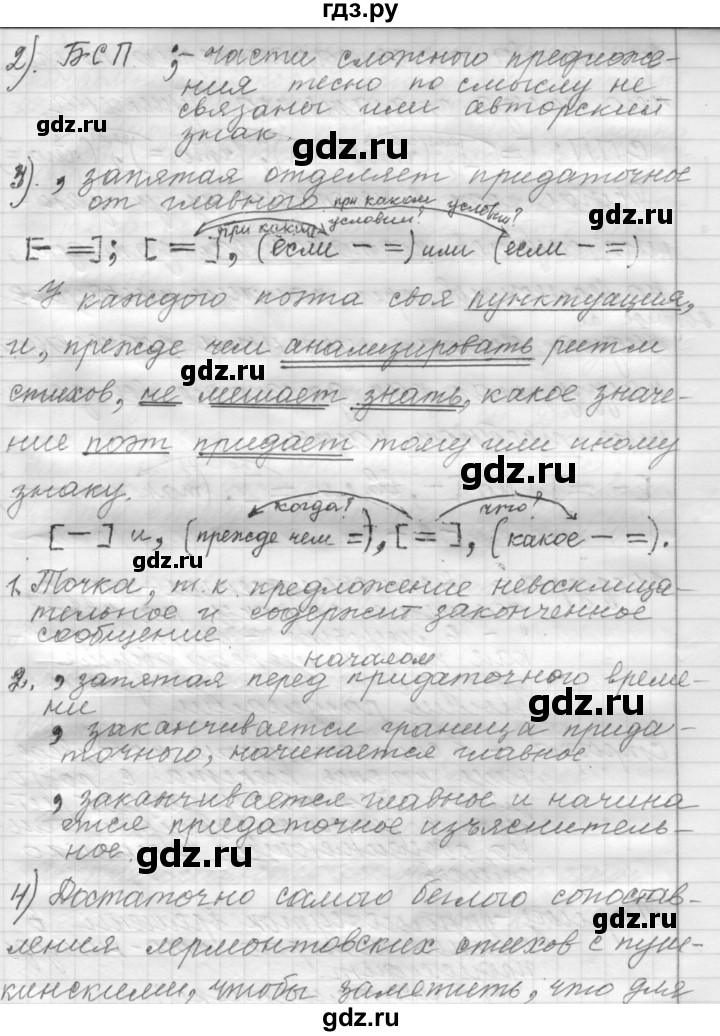 гдз.ру
2). БСП ; - части сложного предложе-
ния тесно по смыслу не
связаны или авторский
знак.
gdz.ru
gdz.ru
3). , запятая отделяет придаточное
от главного
gdz.ru
при каком условии?
при каком условии?
[- =]; [=], (если - =) или (если - =)
У каждого поэта своя пунктуация,
gdz.ru
и, прежде чем анализировать ритм
gdz.ru
стихов, не мешает знать, какое значе-
ние поэт придает тому или иному
знаку.
gdz.ru
когда? что?
[-] и, (прежде чем =), [=], (какое - =).
1. Точка, т.к. предложение невосклица-
gdz.ru
тельное и содержит законченное
сообщение
началом
2. , запятая перед придаточного време-
ни
gdz.ru
, заканчивается граница прида-
точного, начинается главное
, заканчивается главное и начина
ется придаточное изъяснитель-
ное.
gdz.ru
4) Достаточно самого беглого сопостав-
gdz.ru
ления лермонтовских стихов с пуш-
кинскими, чтобы заметить, что для
gdz.ru